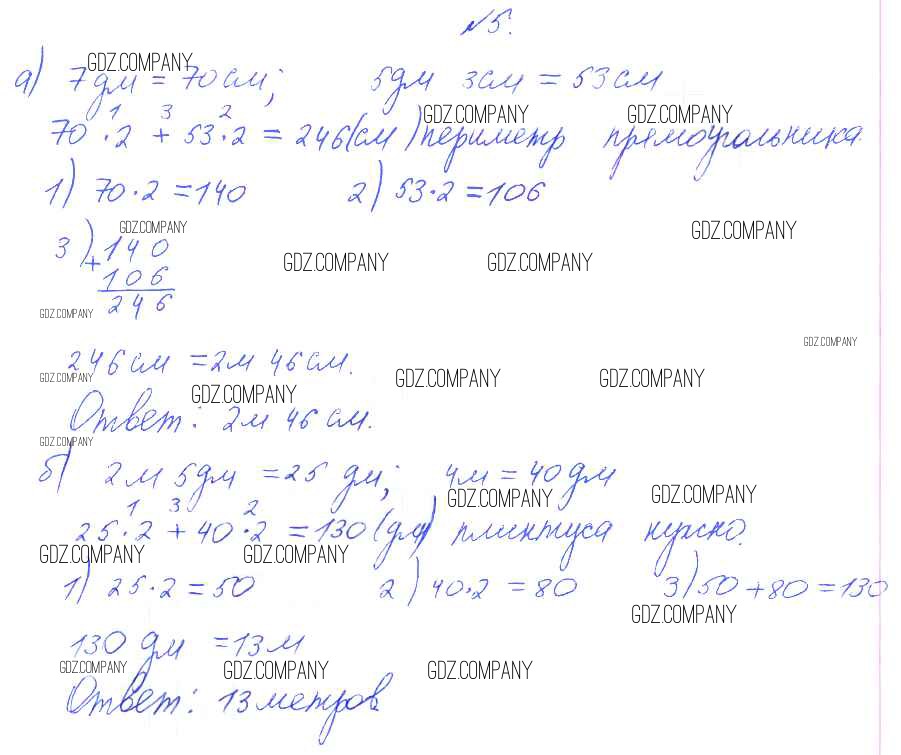 №5.
а) 7дм = 70см; 5дм 3см = 53см
1 3 2
70·2 + 53·2 = 246(см) периметр прямоугольника.
1) 70·2=140 2) 53·2=106
3) +140
106
246
246см = 2м 46см.
Ответ: 2м 46см.
б) 2м 5дм = 25 дм; 4м = 40дм
1 3 2
25·2 + 40·2 = 130(дм) плинтуса нужно.
1) 25·2=50 2) 40·2 = 80 3) 50+80=130
130 дм = 13м
Ответ: 13метров
GDZ.COMPANY
GDZ.COMPANY GDZ.COMPANY
GDZ.COMPANY GDZ.COMPANY
GDZ.COMPANY GDZ.COMPANY
GDZ.COMPANY GDZ.COMPANY
GDZ.COMPANY GDZ.COMPANY GDZ.COMPANY
GDZ.COMPANY GDZ.COMPANY
GDZ.COMPANY GDZ.COMPANY
GDZ.COMPANY GDZ.COMPANY
GDZ.COMPANY
GDZ.COMPANY GDZ.COMPANY GDZ.COMPANY